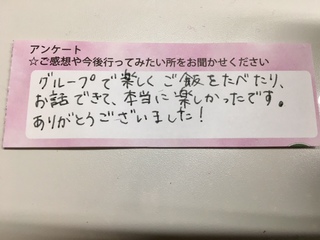 アンケート
☆ご感想や今後行ってみたい所をお聞かせください
グループで楽しくご飯をたべたり、
お話できて、本当に楽しかったです。
ありがとうございました!